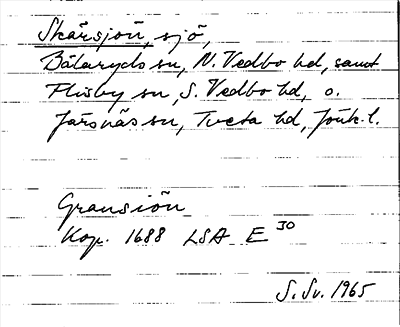 Skärsjön, sjö,
Bälaryds sn, N. Vedbo hd, samt
Flisby sn, S. Vedbo hd, o.
Järsnäs sn, Tveta hd, Jönk. l.
Gransiön
Kop. 1688 LSA E 30
S. Sv. 1965